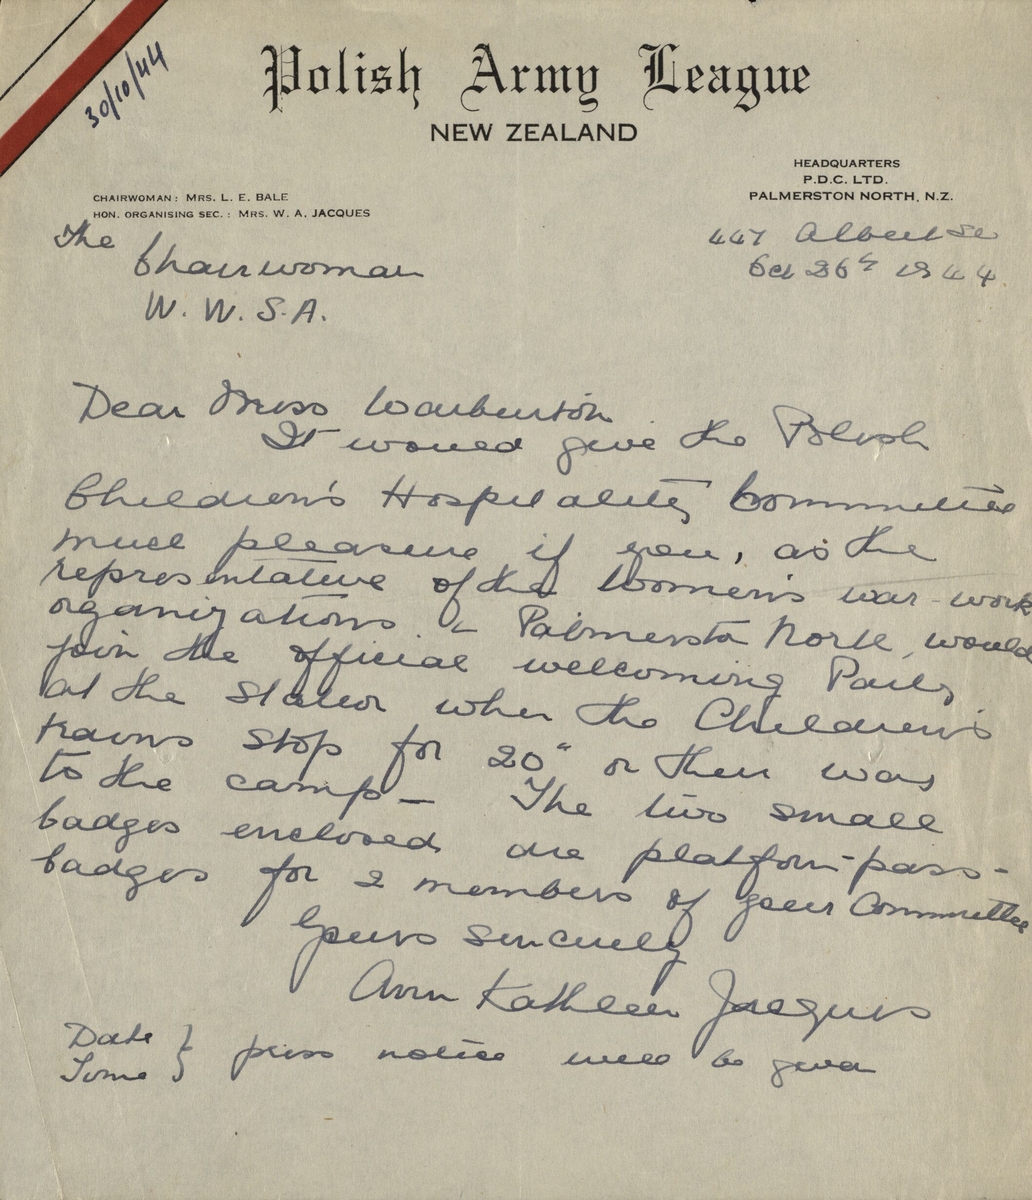 30/10/44
Polish Army League
NEW ZEALAND
HEADQUARTERS
P.D.C. LTD.
PALMERSTON NORTH, N.Z.
CHAIRWOMAN: MRS. L. E. BALE
HON. ORGANISING SEC.: MRS. W. A. JACQUES
447 Albert St
Oct 26th 1944
The
Chairwoman
W. W. S. A.
Dear Miss Warburton
It would give the Polish
Children's Hospitality Committee
much pleasure if you, as the
representative of the Women's war-work
organizations in Palmerston North, would
join the official welcoming Party
at the station when the Children's
trains stop for 20" on their way
to the camp — The two small
badges enclosed are platform-pass-
badges for 2 members of your Committee
Yours sincerely
Ann Kathleen Jacques
Date } press notice will be given
Time }